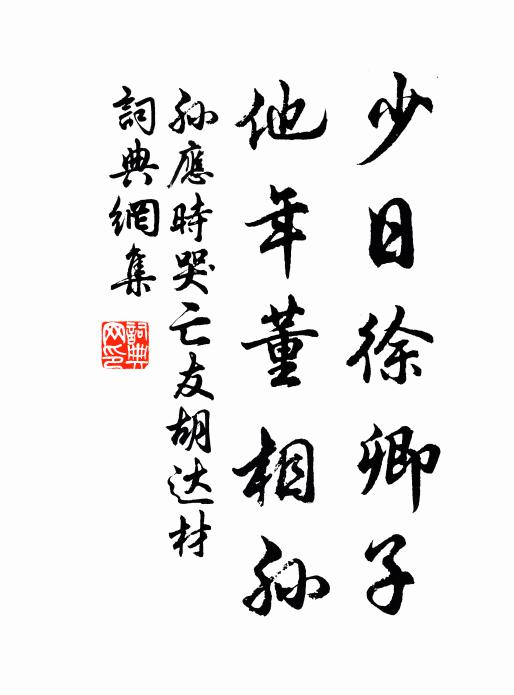 少日徐卿子
他年董相孫
孫應時哭亡友胡达材
詞典網集
詞典網印